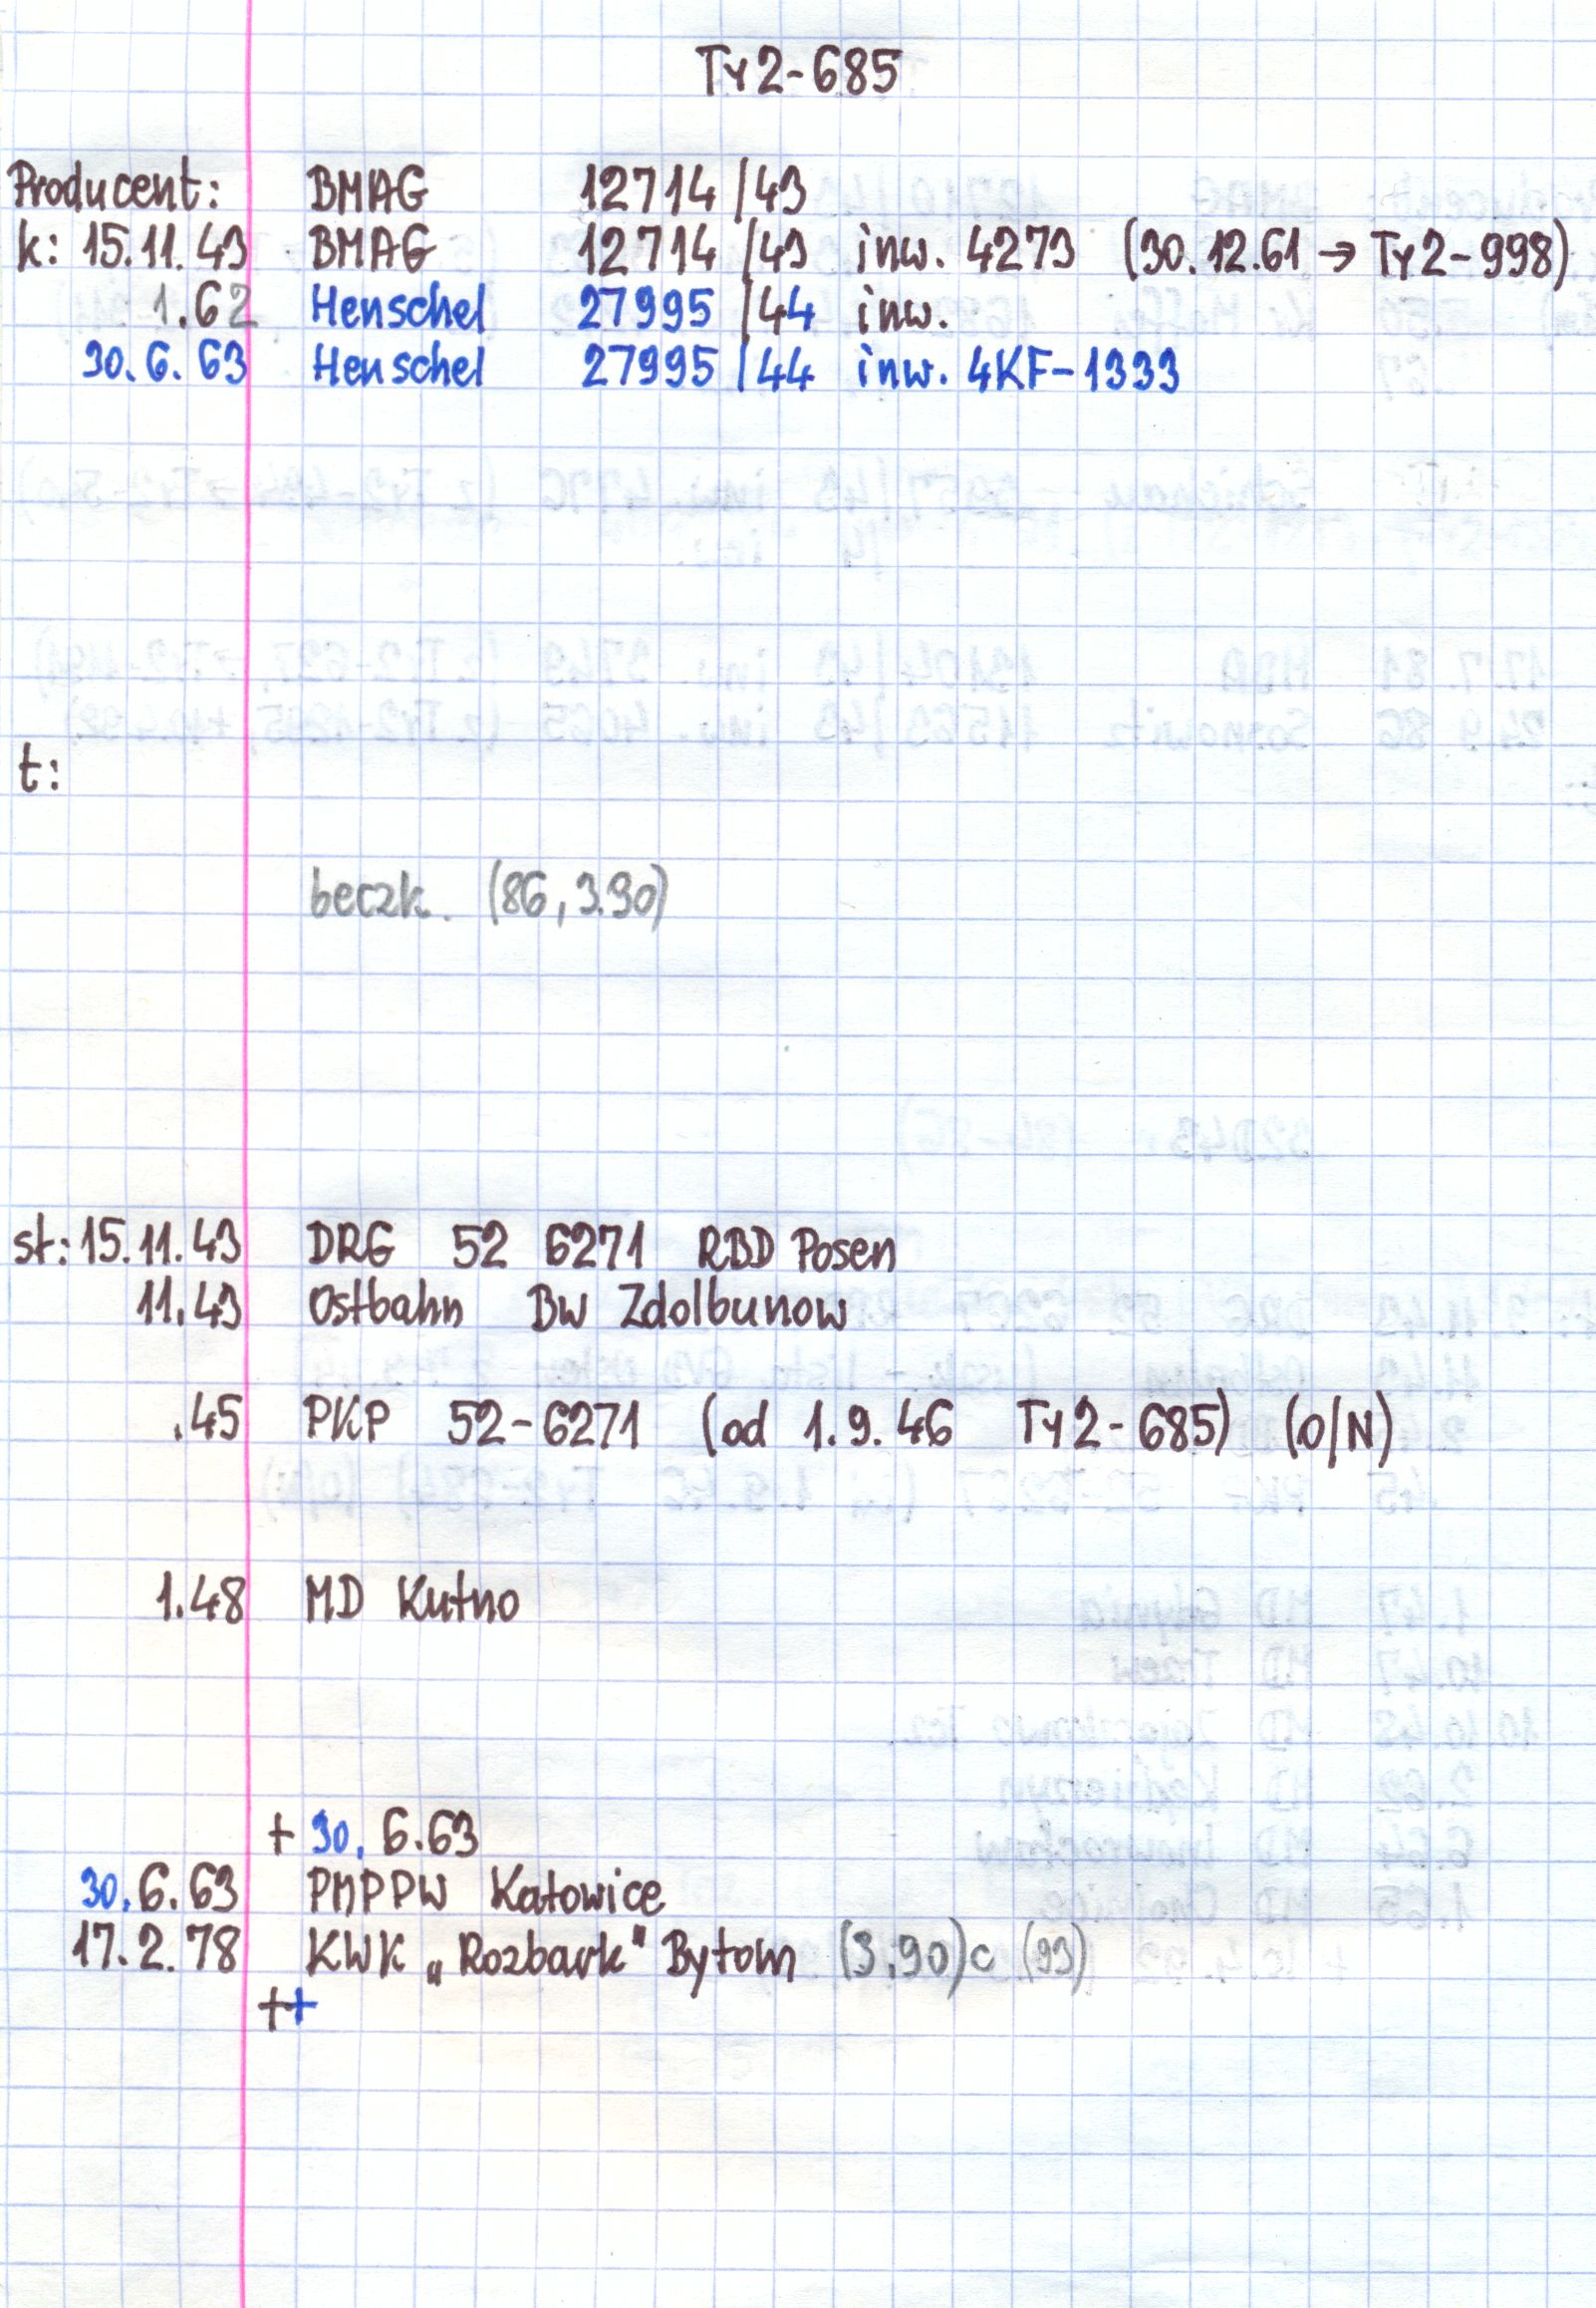 Ty2-685
Producent: BMAG 12714/43
k: 15.11.43 BMAG 12714/43 inw. 4273 (30.12.61 → Ty2-998)
1.62 Henschel 27995/44 inw.
30.6.63 Henschel 27995/44 inw. 4KF-1333
t:
beczk. (86, 3.90)
st: 15.11.43 DRG 52 6271 RBD Posen
11.43 Ostbahn Bw Zdolbunow
.45 PKP 52-6271 (od 1.9.46 Ty2-685) (O/N)
1.48 MD Kutno
+ 30.6.63
30.6.63 PMPPW Katowice
17.2.78 KWK „Rozbark" Bytom (3.90)c (93)
++